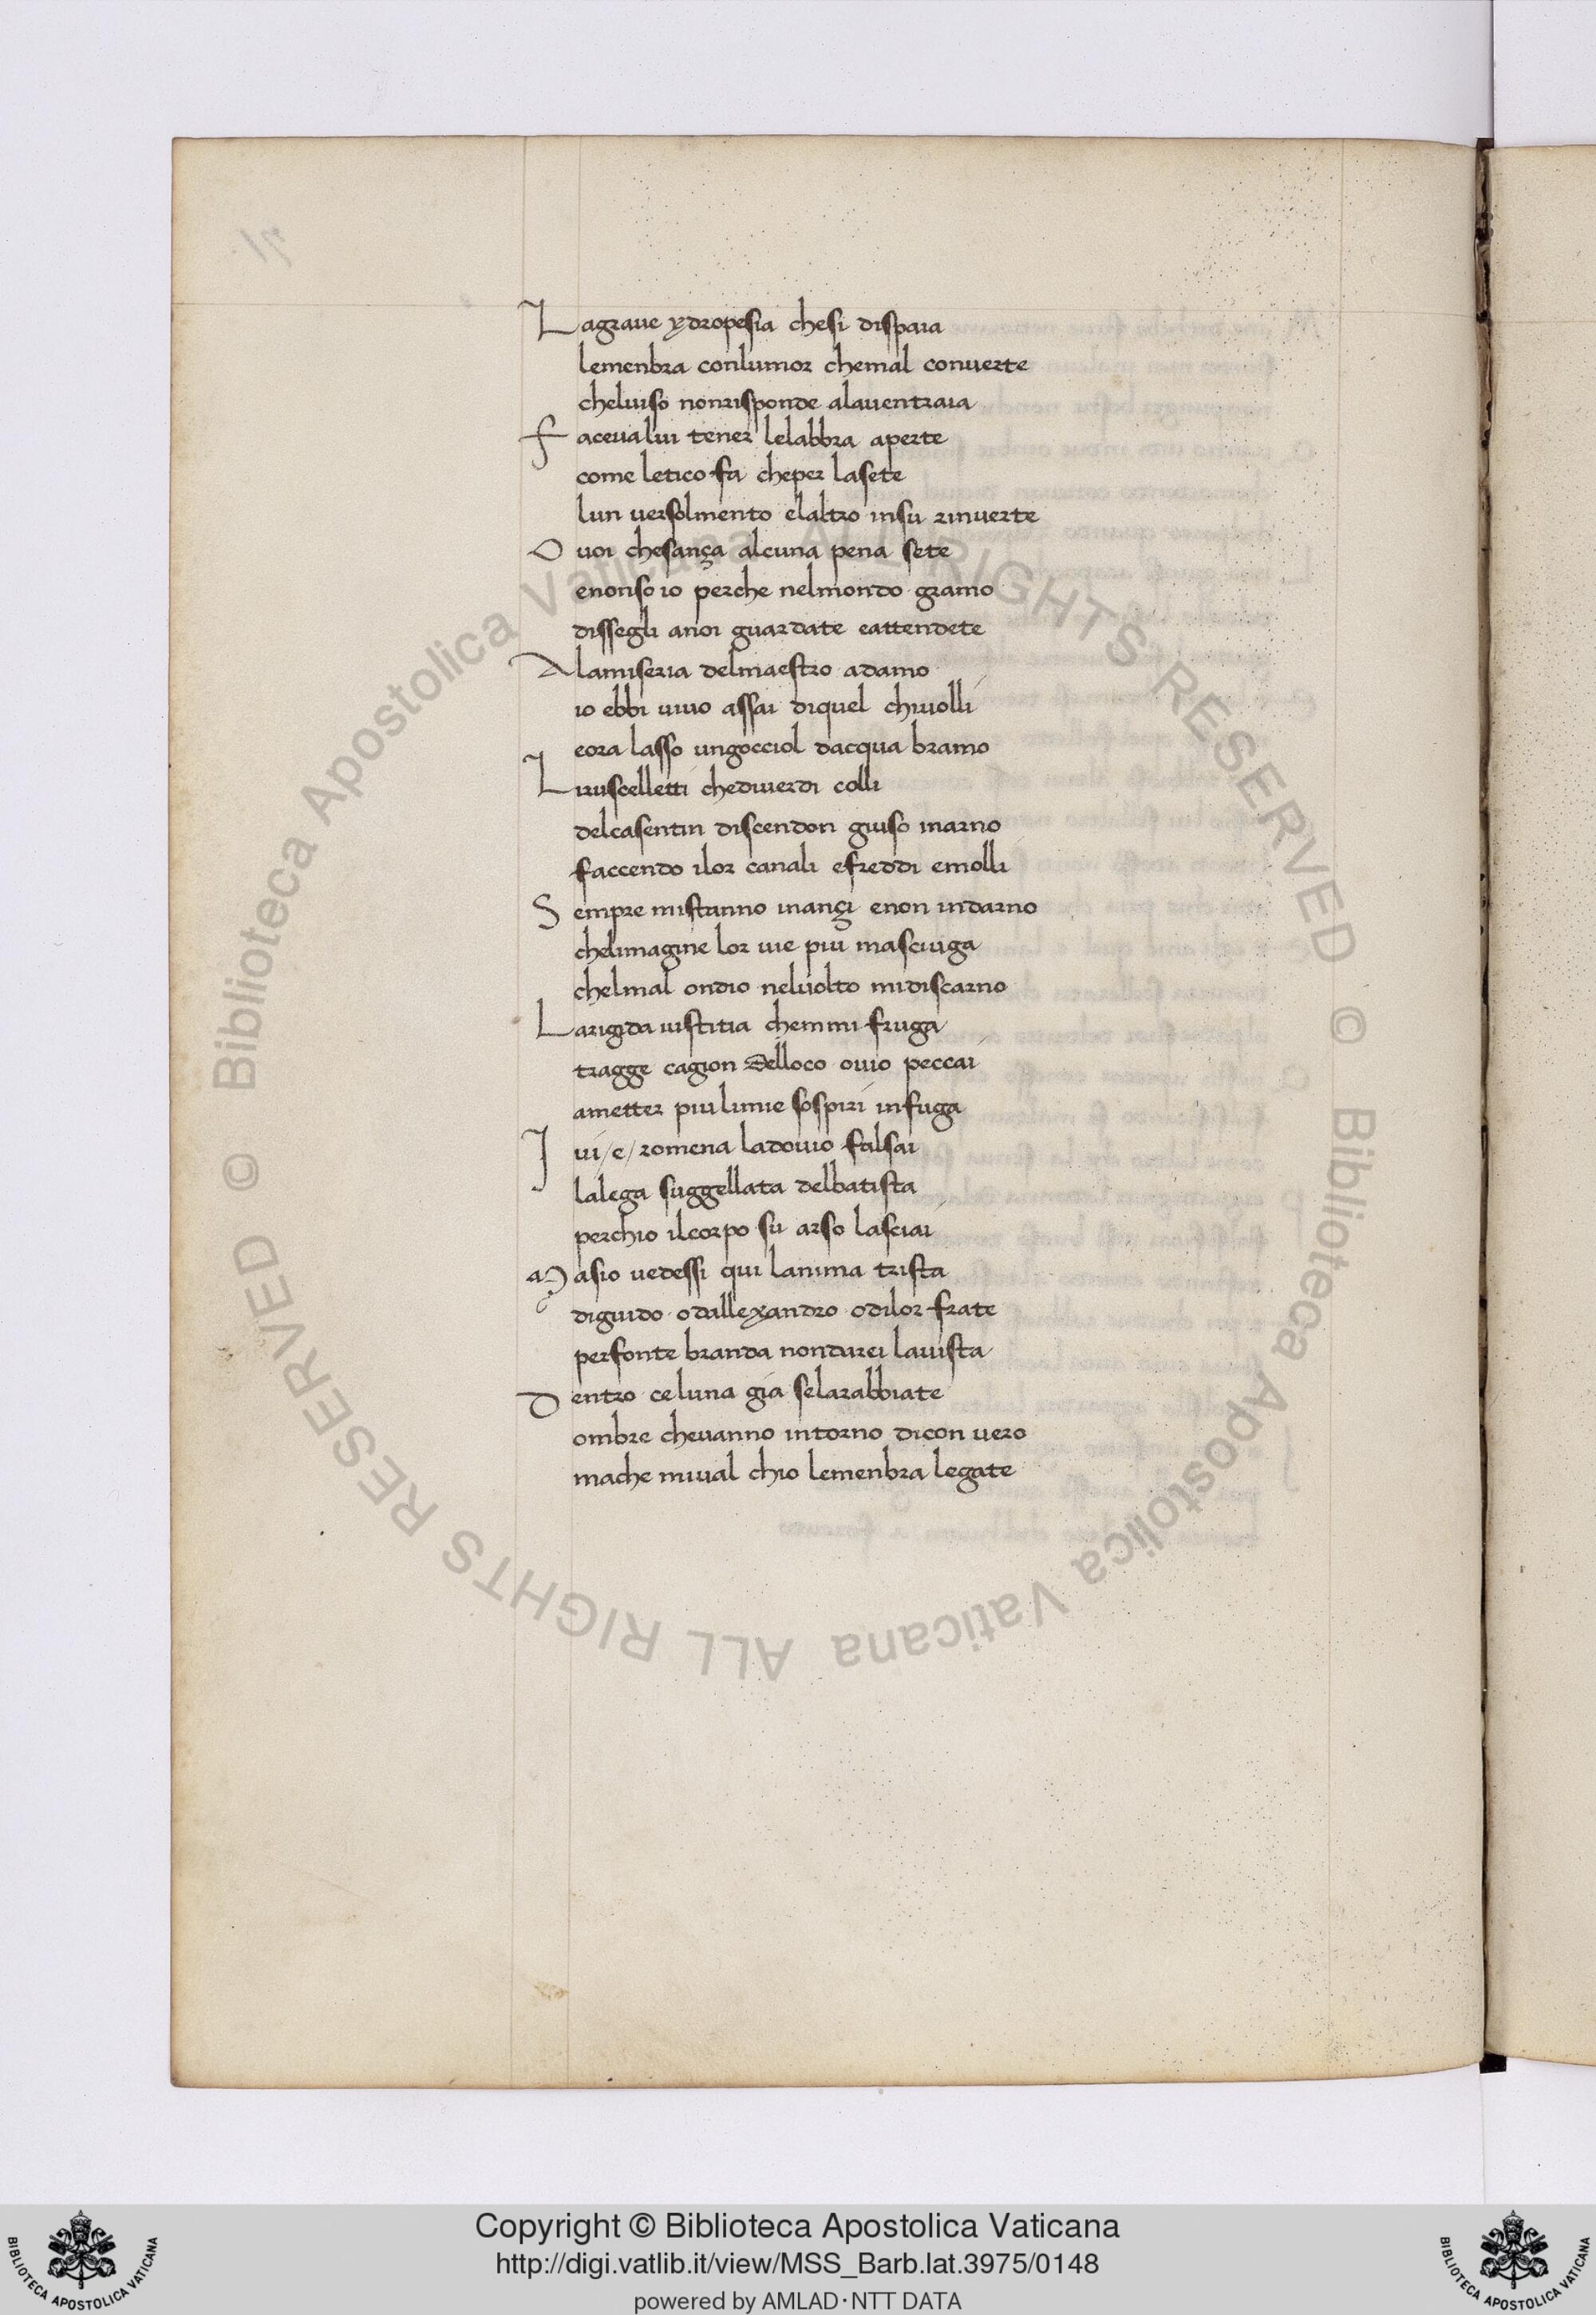 Lagraue ydropesia chesi dispaia
lemenbra conlumor chemal conuerte
cheluiso nonrisponde alauentraia
faceualui tener lelabbra aperte
come letico fa cheper lasete
lun uersolmento elaltro insu rinuerte
O uoi chesança alcuna pena sete
enonso io perche nelmondo gramo
dissegli anoi guardate eattendete
Alamiseria delmaestro adamo
io ebbi uiuo assai diquel chiuolli
eora lasso ungocciol dacqua bramo
Liruscelletti chediuerdi colli
delcasentin discendon giuso inarno
faccendo ilor canali efreddi emolli
Sempre mistanno inançi enon indarno
chelimagine lor uie piu masciuga
chelmal ondio neluolto midiscarno
Larigida iustitia chemmi fruga
tragge cagion delloco ouio peccai
ametter piulimie sospiri infuga
Iui/e/romena ladouio falsai
lalega suggellata delbatista
perchio ilcorpo su arso lasciai
Masio uedessi qui lanima trista
diguido odallexandro odilor frate
perfonte branda nondarei lauista
Dentro celuna gia selarabbiate
ombre cheuanno intorno dicon uero
mache miual chio lemenbra legate
© Biblioteca Apostolica Vaticana ALL RIGHTS RESERVED © Biblioteca Apostolica Vaticana ALL RIGHTS RESERVED
BIBLIOTECA APOSTOLICA VATICANA
Copyright © Biblioteca Apostolica Vaticana
http://digi.vatlib.it/view/MSS_Barb.lat.3975/0148
powered by AMLAD·NTT DATA
BIBLIOTECA APOSTOLICA VATICANA